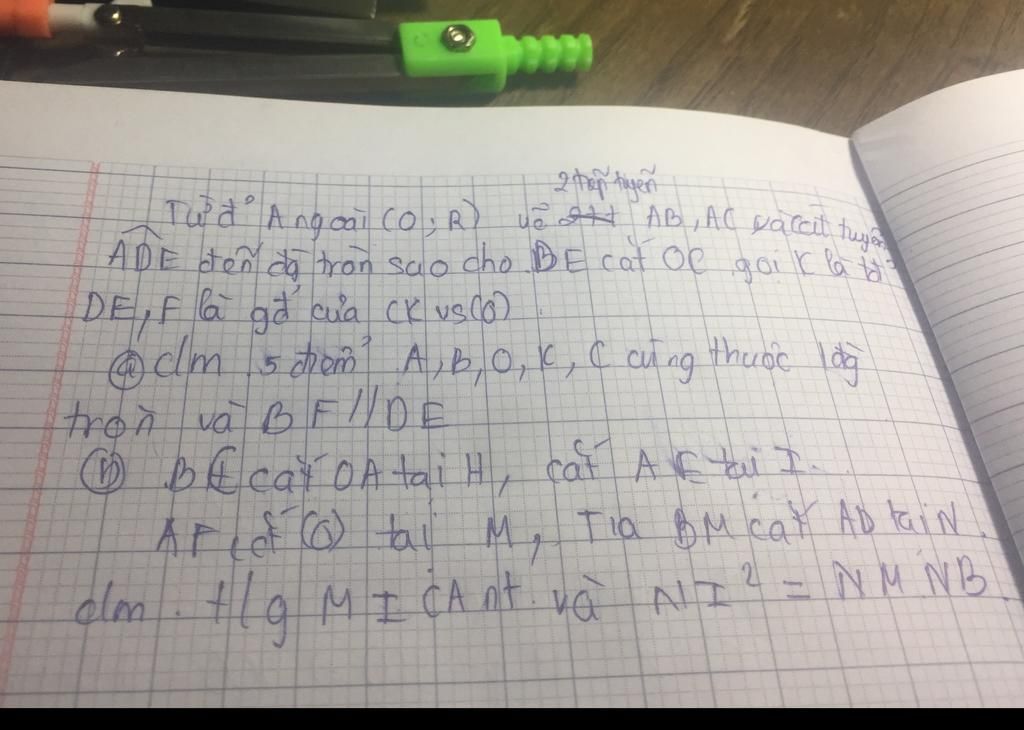 2 tiếp tuyến
Từ đ' A ngoài (O;R) vẽ AB, AC và cát tuyến
ADE đến đg tròn sao cho DE cắt OC gọi K là tđ'
DE, F là gđ' của CK vs (O).
a c/m 5 điểm A, B, O, K, C cùng thuộc 1 đg
tròn và BF // DE
b BC cắt OA tại H, cắt AE tại I.
AF cắt (O) tại M, Tia BM cắt AD tại N.
c/m t/g MICA nt và NI² = NM NB.